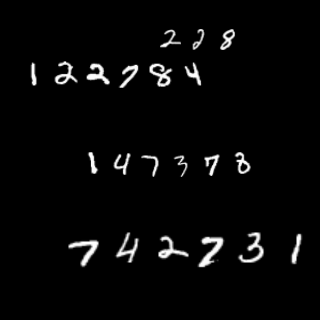 228
122784
147373
742731